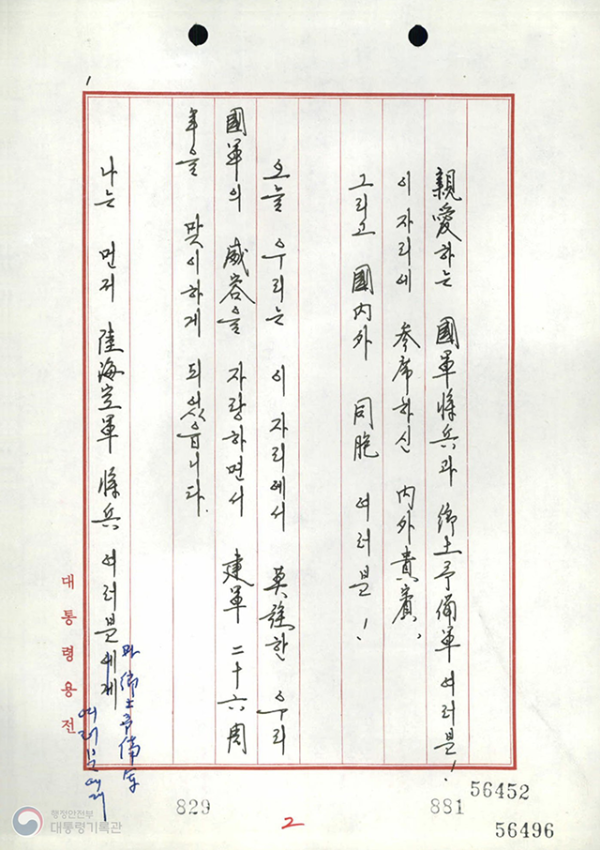 親愛하는 國軍將兵과 鄕土予備軍 여러분!
이 자리에 參席하신 內外貴賓,
그리고 國內外 同胞 여러분!
오늘 우리는 이 자리에서 莫强한 우리
國軍의 威容을 자랑하면서 建軍 二十六周
年을 맞이하게 되었읍니다.
나는 먼저 陸海空軍 將兵 여러분에게
과 鄕土予備軍
여러분에게
대통령용전
829
2
881
56452
56496
행정안전부
대통령기록관